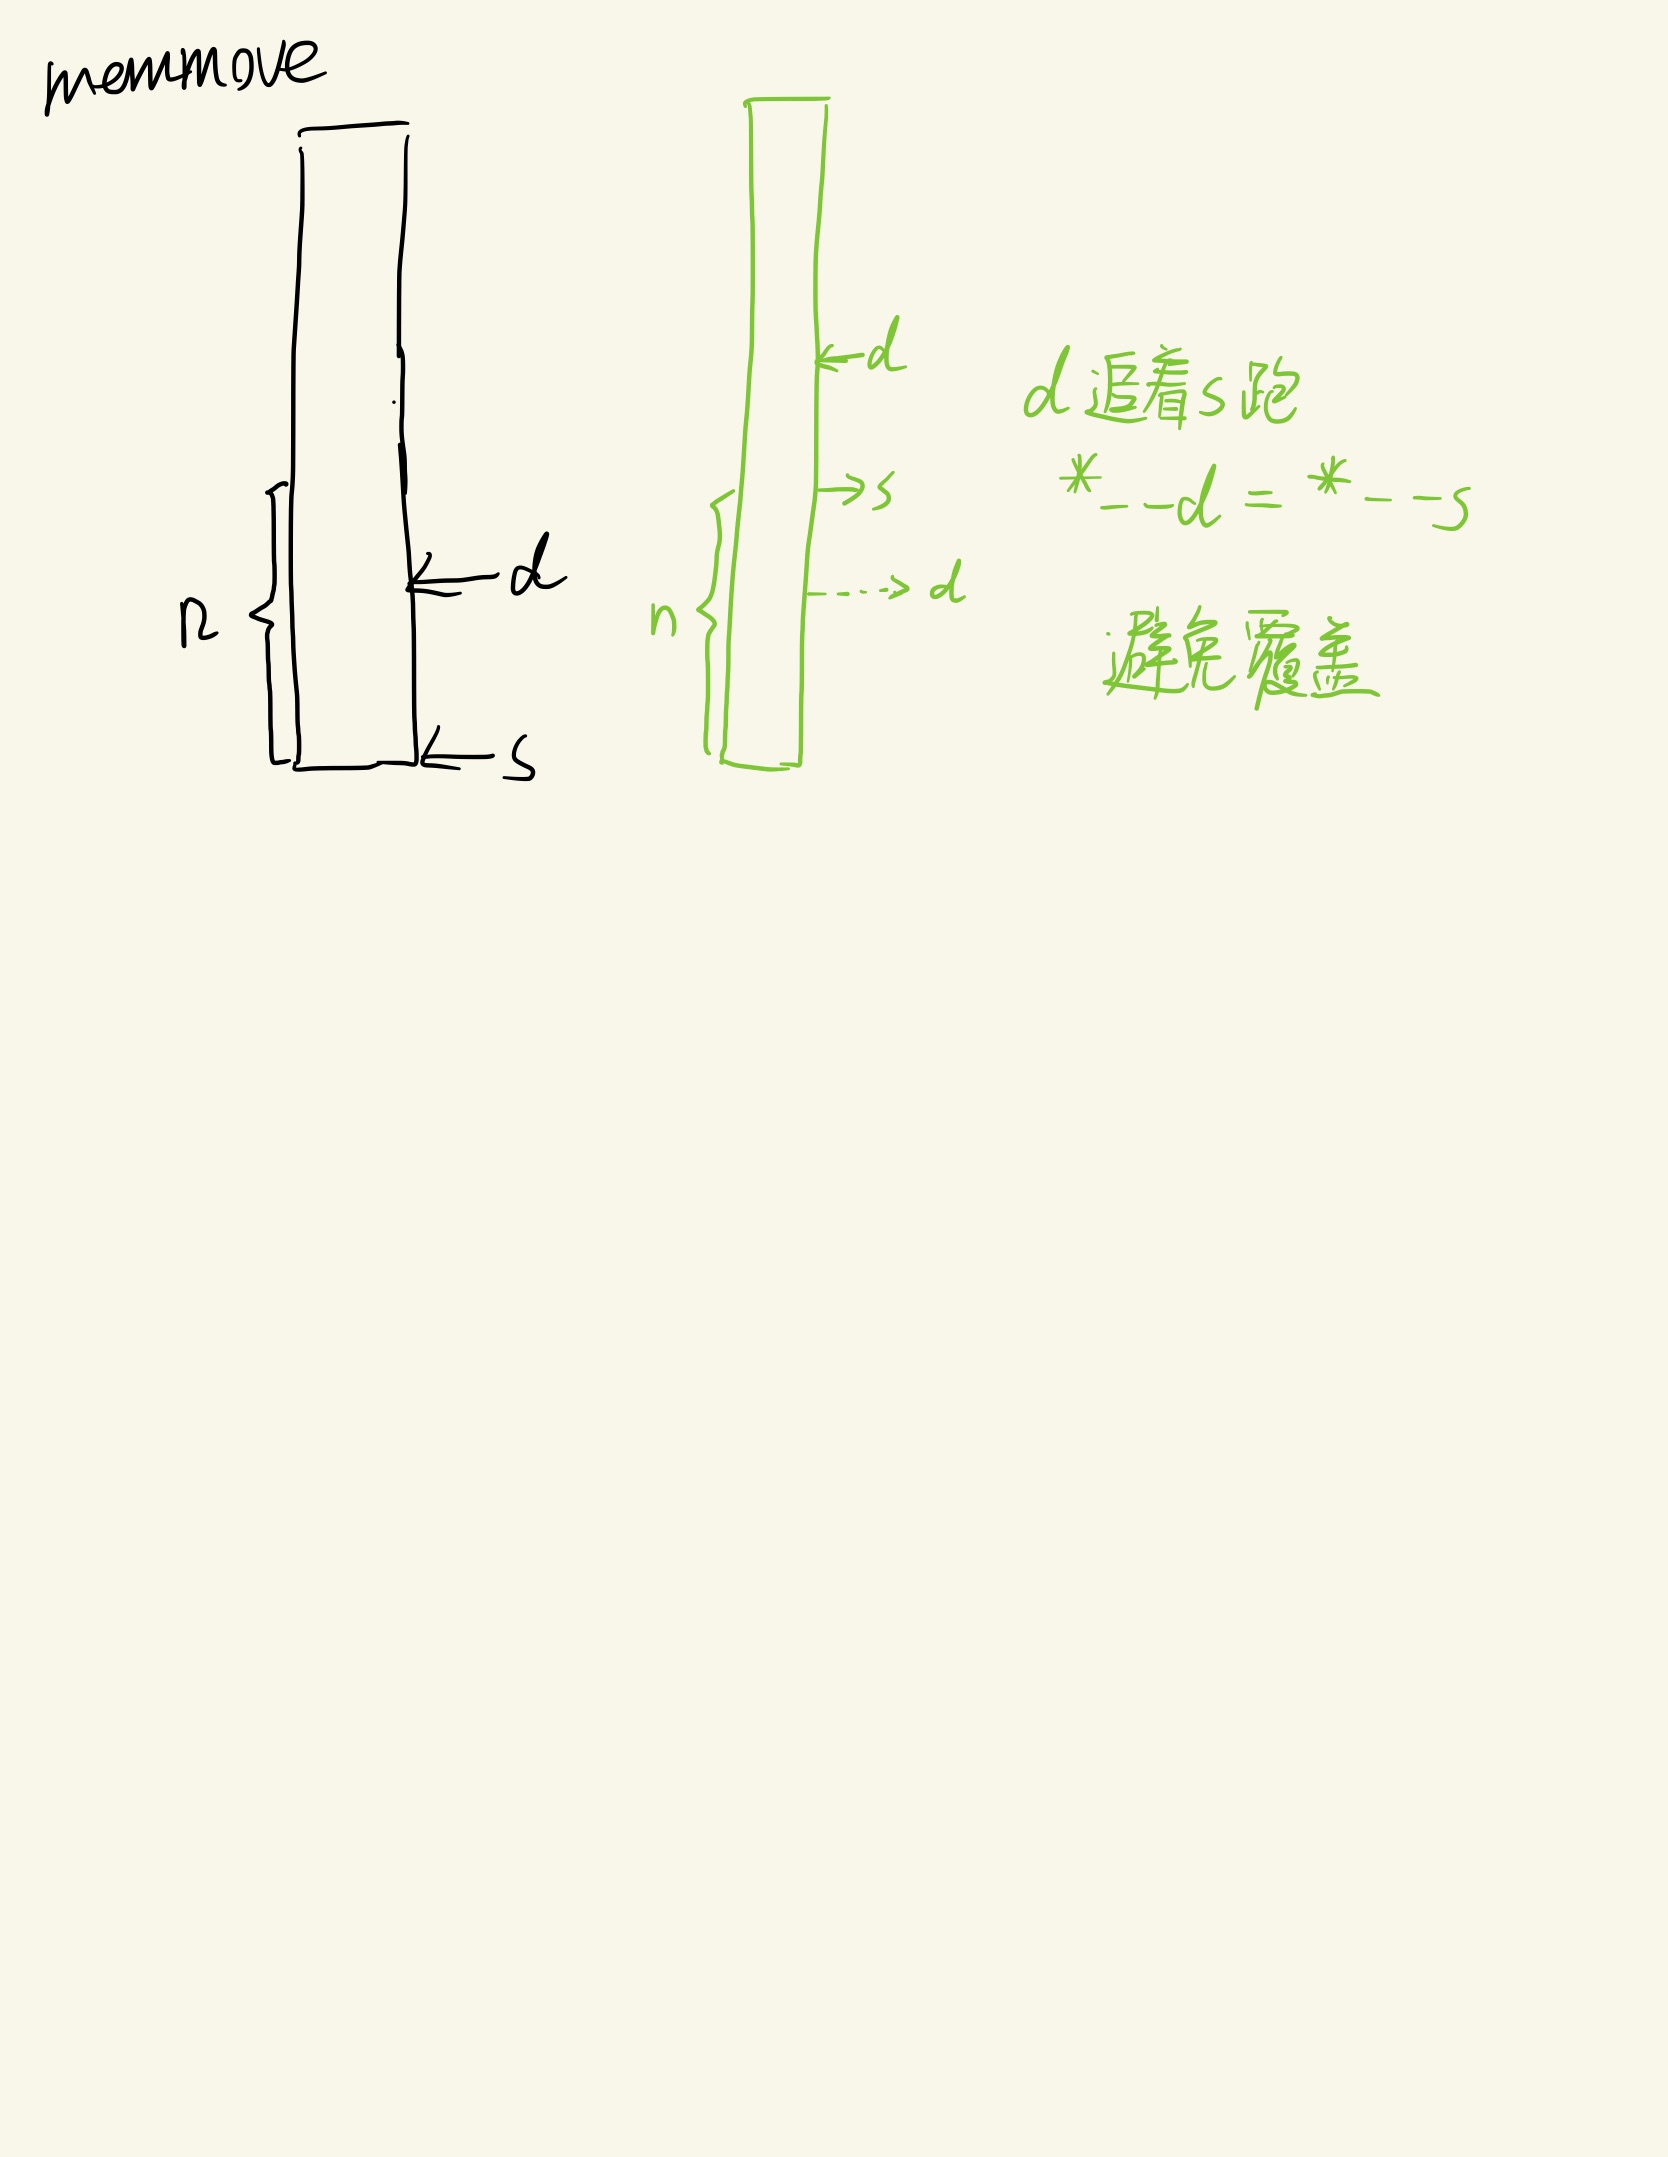 memmove
n
d
s
d
s
n
d
d追着s跑
*--d = *--s
避免覆盖